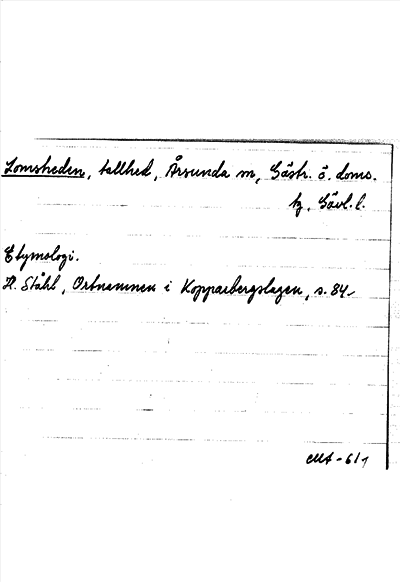 Lomsheden, tallhed, Årsunda sn, Gästr. ö. doms.
tg, Gävl. l.
Etymologi.
H. Ståhl, Ortnamnen i Kopparbergslagen, s. 84